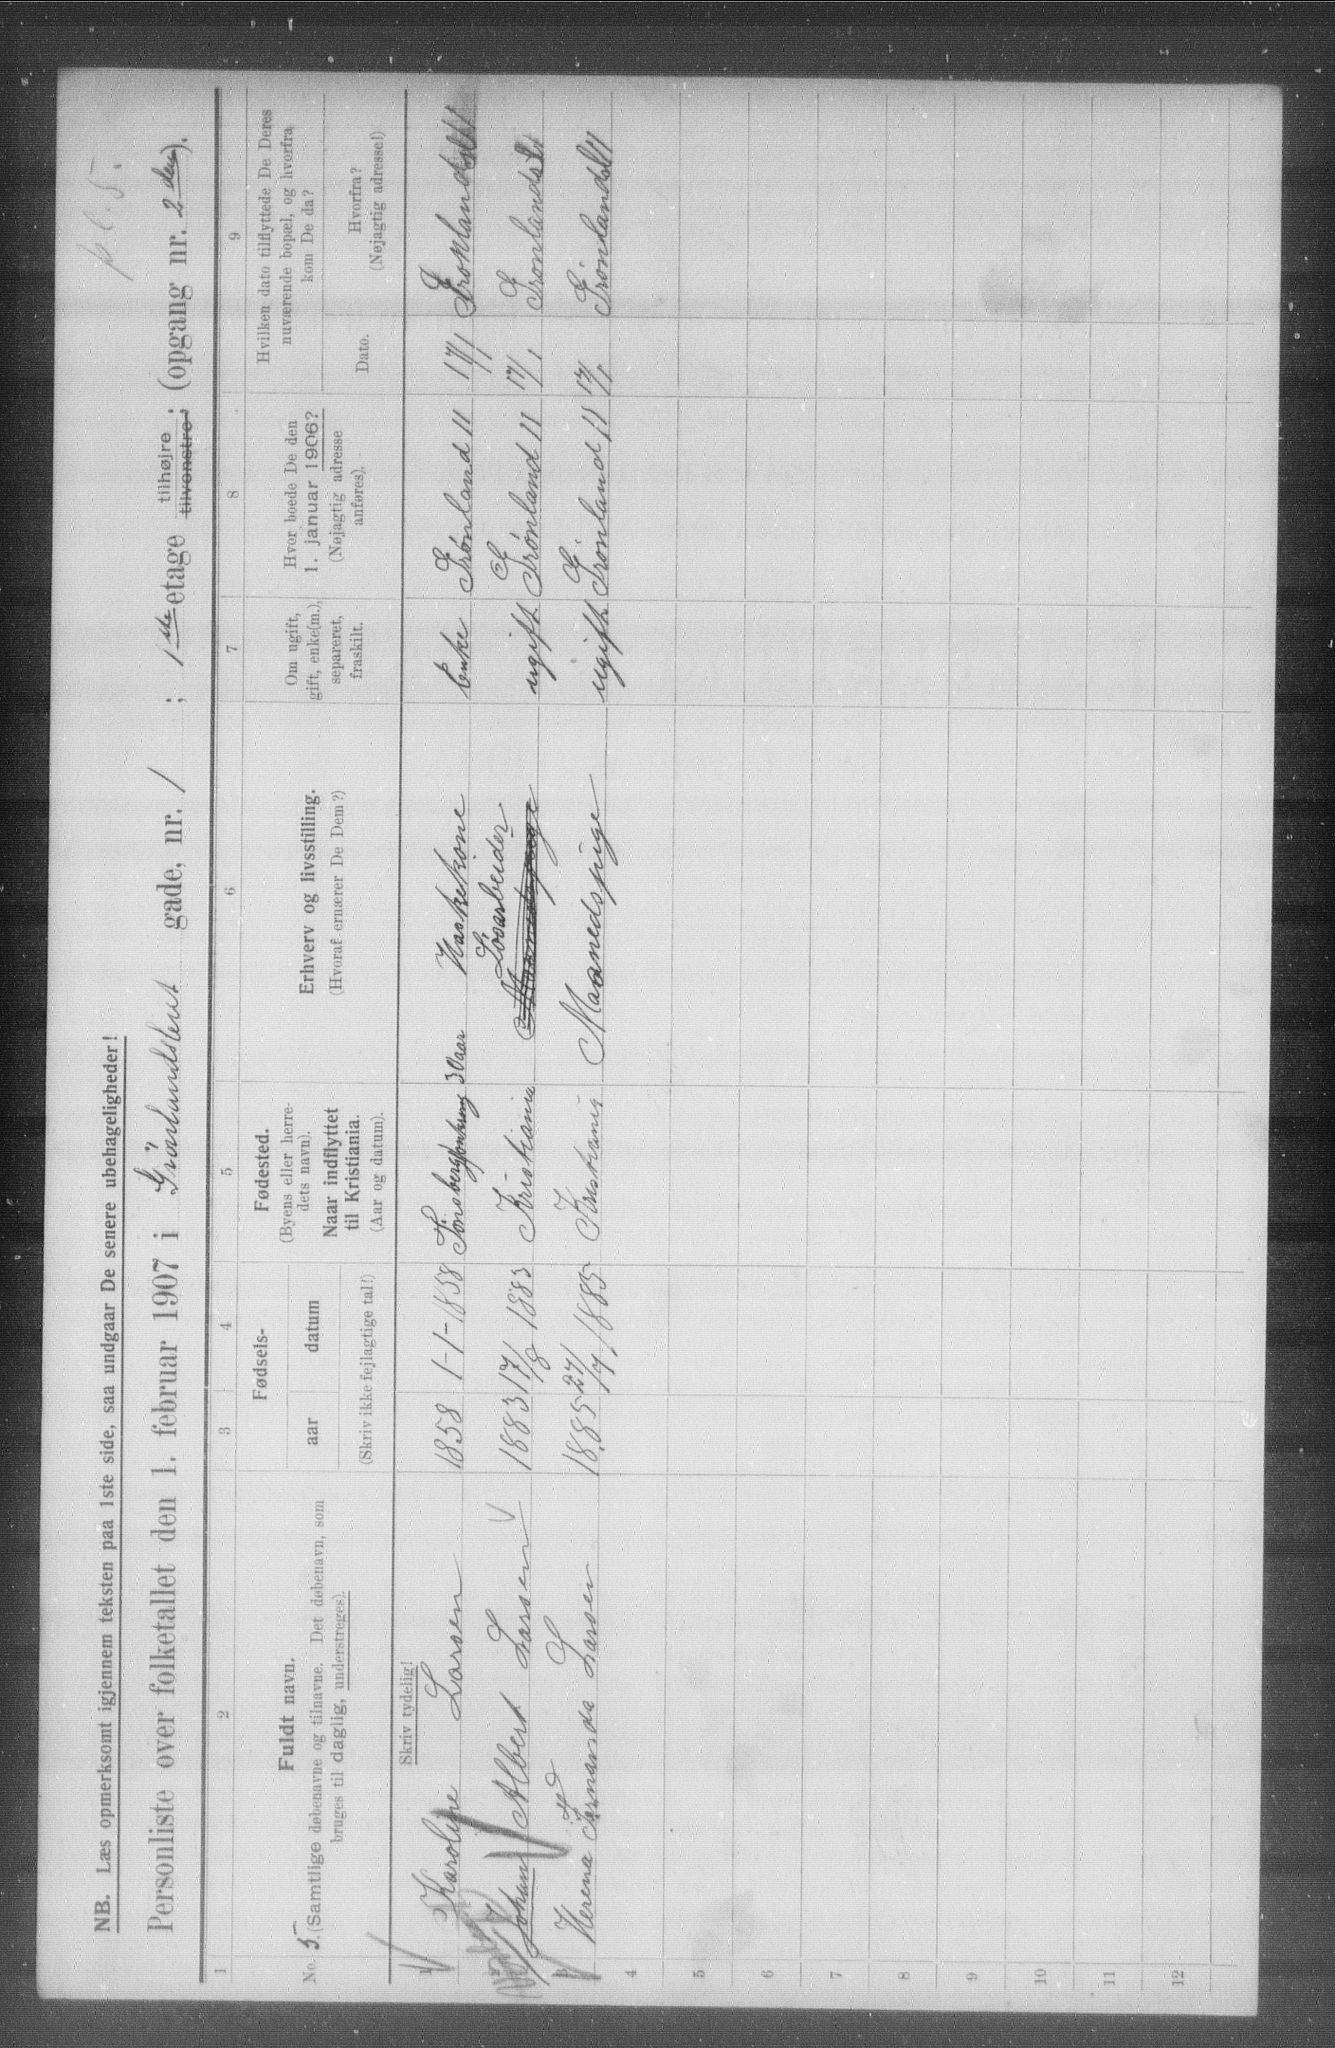 pl. 5.
NB. Læs opmerksomt igjennem teksten paa 1ste side, saa undgaar De senere ubehageligheder!
Personliste over folketallet den 1. februar 1907 i Grönlandsleret gade, nr. 1 ; 1ste etage tilhøjre tilvenstre; (opgang nr. 2 den).
1 2 3 4 5 6 7 8 9
No. 5.
Fuldt navn.
(Samtlige døbenavne og tilnavne. Det døbenavn, som
bruges til daglig, understreges).
Fødsels-
aar datum
(Skriv ikke fejlagtige tal!)
Fødested.
(Byens eller herre-
dets navn).
Naar indflyttet
til Kristiania.
(Aar og datum).
Erhverv og livsstilling.
(Hvoraf ernærer De Dem?)
Om ugift,
gift, enke(m.),
separeret,
fraskilt.
Hvor boede De den
1. januar 1906?
(Nøjagtig adresse
anføres).
Hvilken dato tilflyttede De Deres
nuværende bopæl, og hvorfra
kom De da?
Dato.
Hvorfra?
(Nøjagtig adresse!)
Skriv tydelig!
1 Karoline Larsen 1858 1-1-1858 Tönsberg 30 aar Vaskekone Enke Grönland 11 17/1 Grönland 11
2 Johan Albert Larsen 1883 17/8 1883 Kristiania Lösarbeider ugift Grönland 11 17/1 Grönland 11
3 Verena Fernanda Larsen 1885 27/7 1885 Kristiania Maanedspige ugift Grönland 11 17/1 Grönland 11
4
5
6
7
8
9
10
11
12